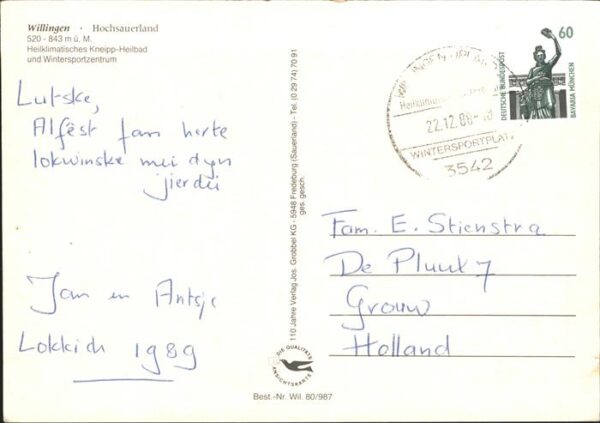 Willingen · Hochsauerland
520 - 843 m ü. M.
Heilklimatisches Kneipp-Heilbad
und Wintersportzentrum
Lutske,
Alfêst fan herte
lokwinske mei dyn
jierdei
Jan en Antsje
Lokkich 1989
110 Jahre Verlag Jos. Grobbel KG - 5948 Fredeburg (Sauerland) - Tel. (0 29 74) 70 91
ges. gesch.
DIE QUALITÄTS
ANSICHTSKARTE
Best.-Nr. Wil. 80/987
22.12.88
WINTERSPORTPLATZ
3542
60
DEUTSCHE BUNDESPOST
BAVARIA MÜNCHEN
Fam. E. Stienstra
De Pluut 7
Grouw
Holland